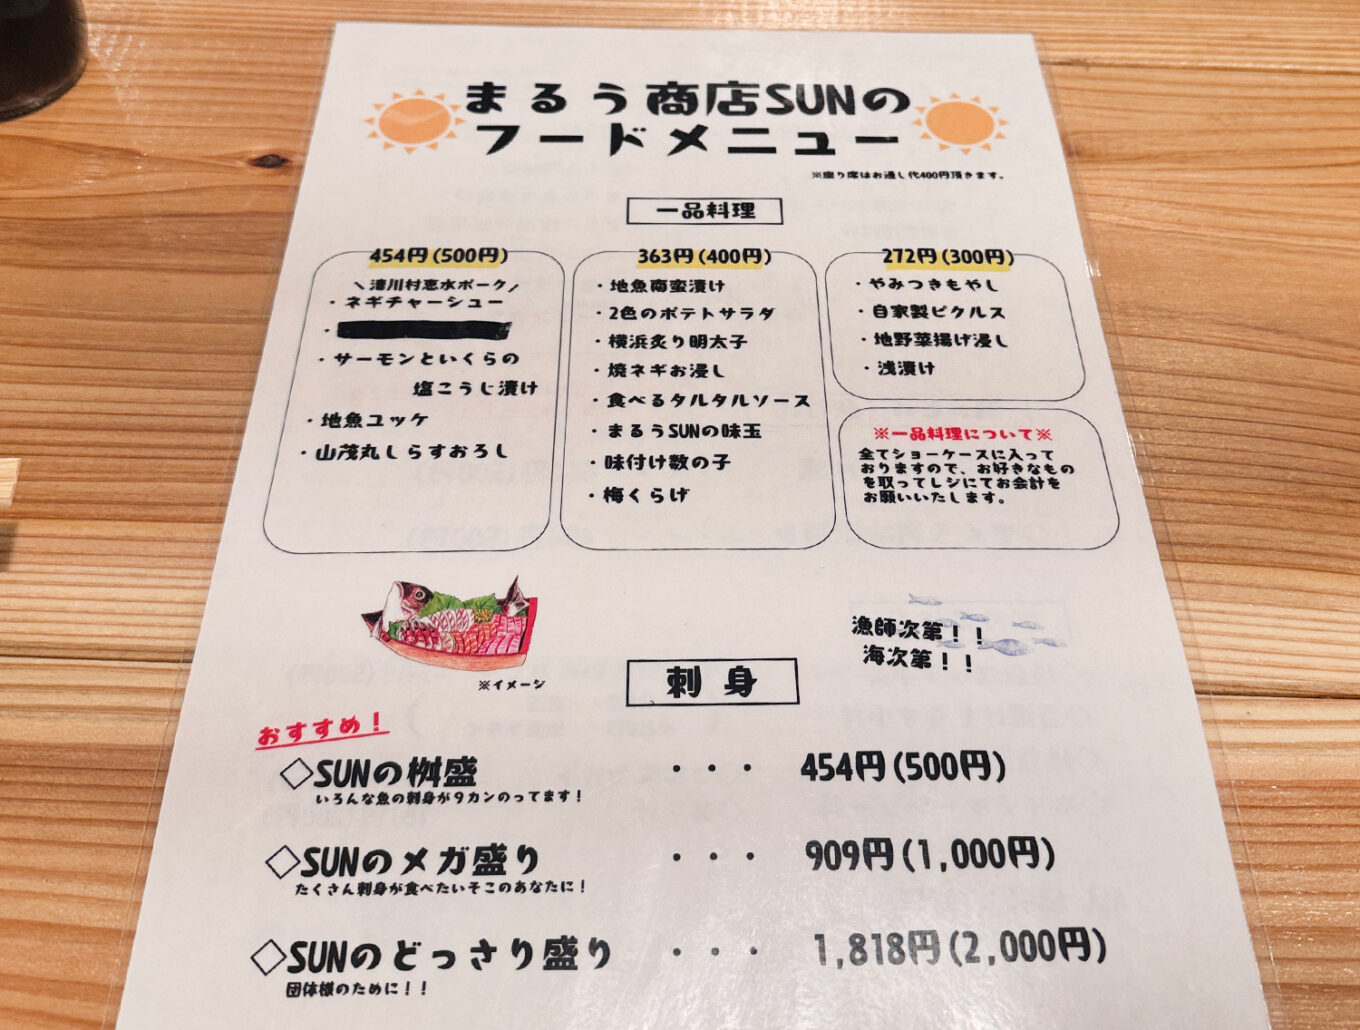 まるう商店SUNの
フードメニュー
※座り席はお通し代400円頂きます。
一品料理
454円(500円)
＼清川村恵水ポーク／
・ネギチャーシュー
・
・サーモンといくらの
塩こうじ漬け
・地魚ユッケ
・山茂丸しらすおろし
363円(400円)
・地魚南蛮漬け
・2色のポテトサラダ
・横浜炙り明太子
・焼ネギお浸し
・食べるタルタルソース
・まるうSUNの味玉
・味付け数の子
・梅くらげ
272円(300円)
・やみつきもやし
・自家製ピクルス
・地野菜揚げ浸し
・浅漬け
※一品料理について※
全てショーケースに入って
おりますので、お好きなもの
を取ってレジにてお会計を
お願いいたします。
※イメージ
漁師次第！！
海次第！！
刺身
おすすめ！
◇SUNの桝盛 ・・・ 454円(500円)
いろんな魚の刺身が9カンのってます！
◇SUNのメガ盛り ・・・ 909円(1,000円)
たくさん刺身が食べたいそこのあなたに！
◇SUNのどっさり盛り ・・・ 1,818円(2,000円)
団体様のために！！